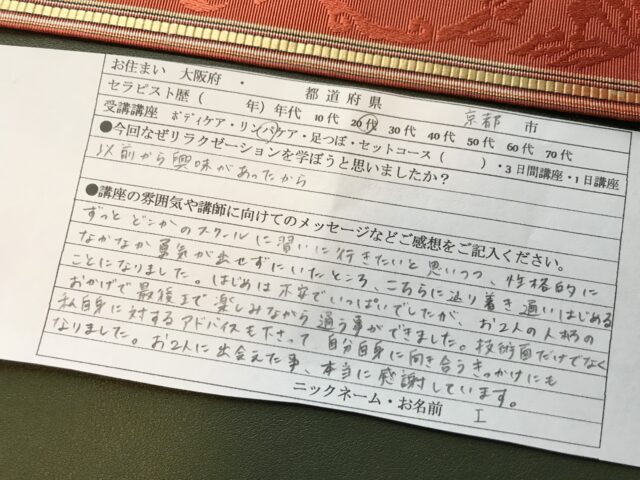 お住まい 大阪府 ・ 都道府県 京都 市
セラピスト歴( 年)年代 10代 20代 30代 40代 50代 60代 70代
受講講座 ボディケア・リンパケア・足つぼ・セットコース( )・3日間講座・1日講座
●今回なぜリラクゼーションを学ぼうと思いましたか?
以前から興味があったから
●講座の雰囲気や講師に向けてのメッセージなどご感想をご記入ください。
ずっと どこかのスクールに習いに行きたいと思いつつ、性格的に
なかなか勇気が出せずにいたところ、こちらに辿り着き通いはじめる
ことになりました。はじめは不安でいっぱいでしたが、お2人の人柄の
おかげで最後まで楽しみながら通う事ができました。技術面だけでなく
私自身に対するアドバイスも下さって自分自身に向き合うきっかけにも
なりました。お2人に出会えた事、本当に感謝しています。
ニックネーム・お名前 I